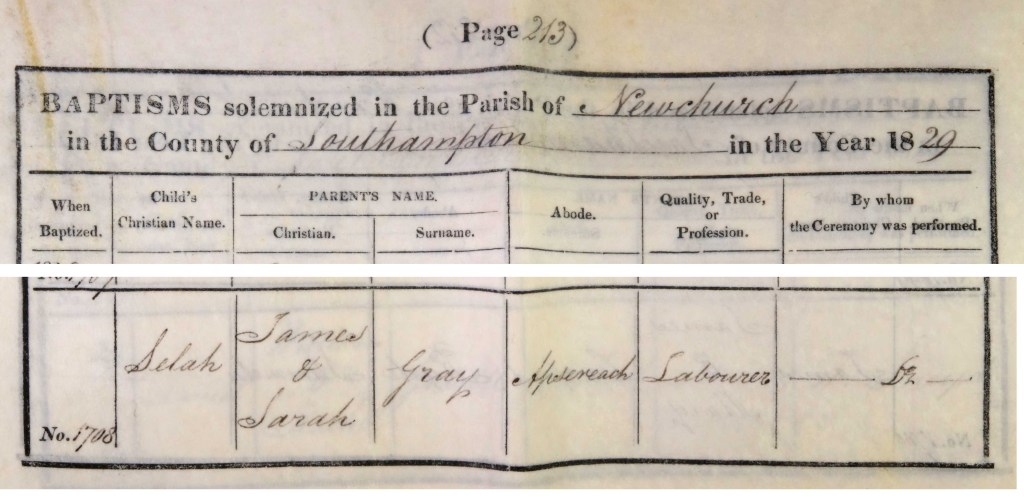 ( Page 213)
BAPTISMS solemnized in the Parish of Newchurch
in the County of Southampton in the Year 1829
When Baptized.
Child's Christian Name.
PARENT'S NAME.
Christian.
Surname.
Abode.
Quality, Trade, or Profession.
By whom the Ceremony was performed.
No. 1708
Selah
James
&
Sarah
Gray
Apsereach
Labourer
Do